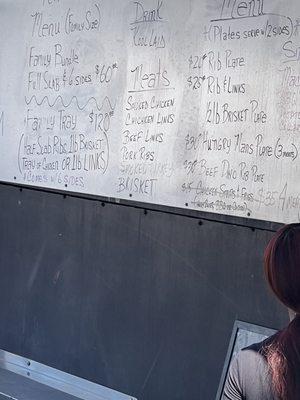 Menu (Family Size)
Family Bundle
Full Slab & 6 sides $60.00
Family Tray $120
(Half Slab Ribs 1lb Brisket)
(Tray of Chicken OR 1lb LINKS)
& Comes w/ 6 SIDES
Drink
KoolAid
Meats
Sauced Chicken
Chicken Links
Beef Links
Pork Ribs
Smoked Turkey
BRISKET
Menu
(Plates serve w/ 2 sides
Rib Plate
Rib & Links
1/2lb Brisket Plate
Hungry Mans Plate (3 meats)
Beef Dino Rib Plate
$15
$35